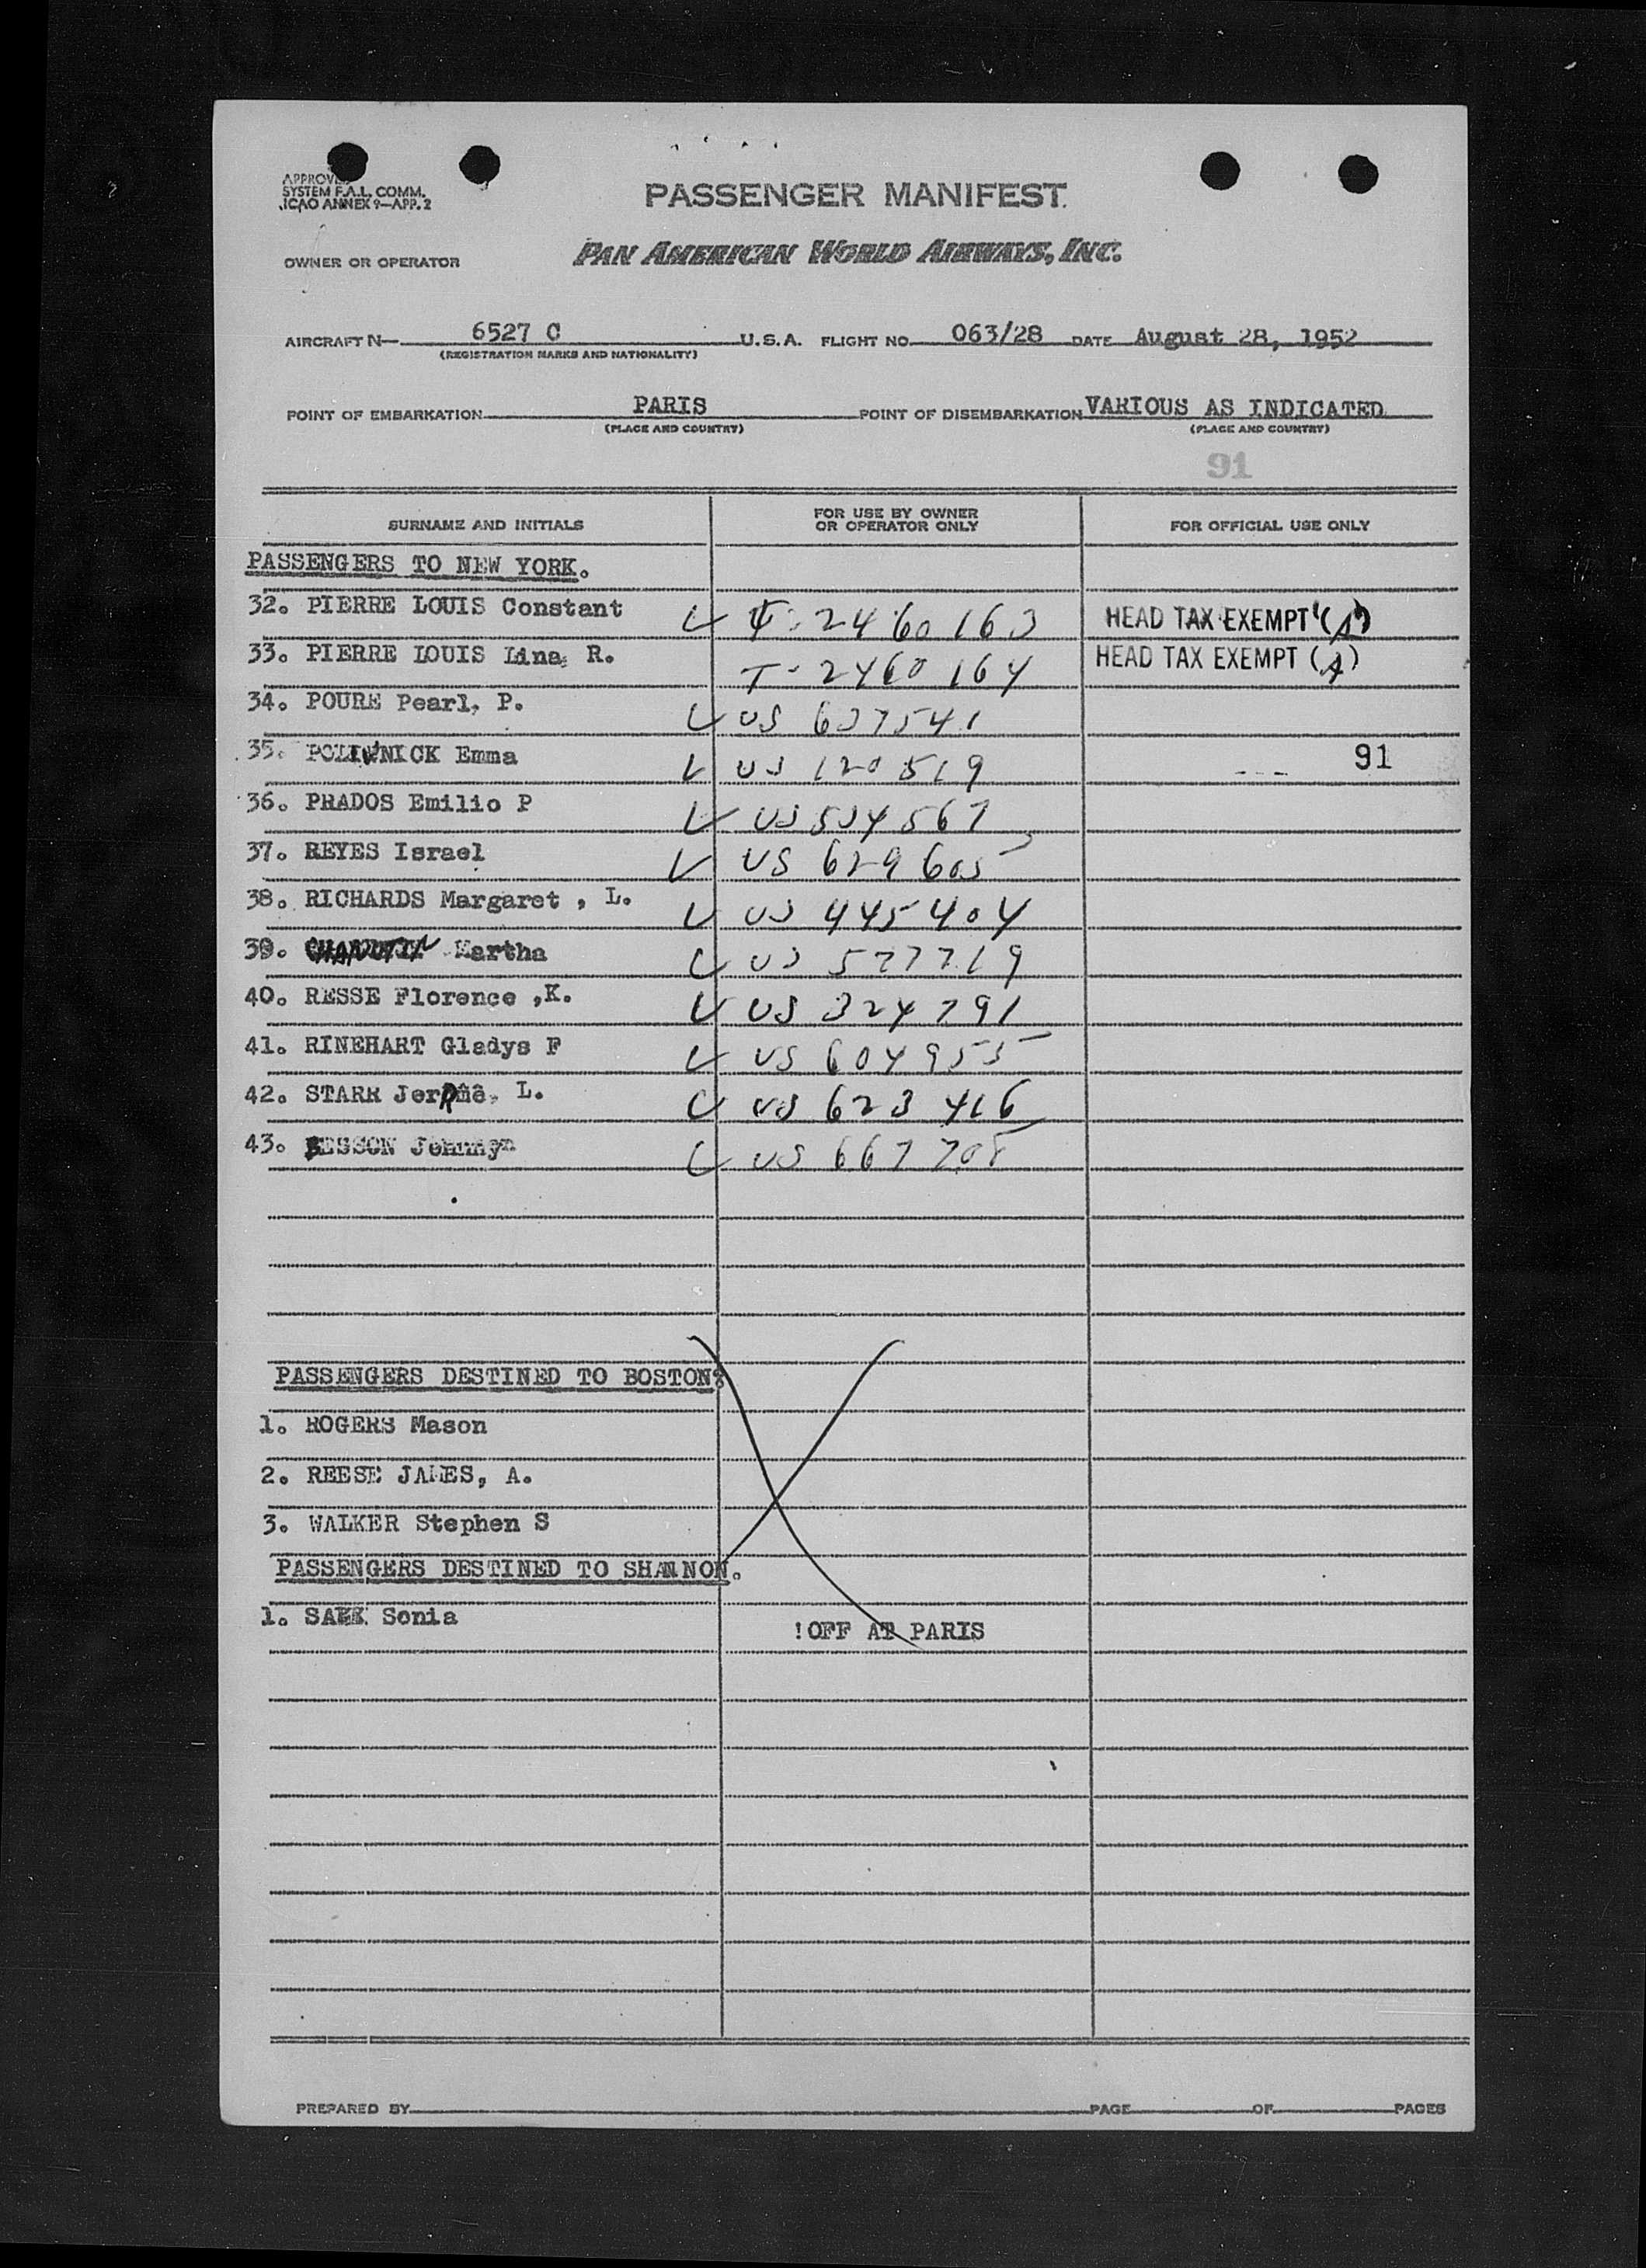 APPROVE
SYSTEM F.A.L. COMM.
ICAO ANNEX 9—APP. 2
PASSENGER MANIFEST
OWNER OR OPERATOR PAN AMERICAN WORLD AIRWAYS, INC.
AIRCRAFT N— 6527 C U.S.A. FLIGHT NO. 063/28 DATE August 28, 1952
(REGISTRATION MARKS AND NATIONALITY)
POINT OF EMBARKATION PARIS POINT OF DISEMBARKATION VARIOUS AS INDICATED
(PLACE AND COUNTRY) (PLACE AND COUNTRY)
91
SURNAME AND INITIALS FOR USE BY OWNER OR OPERATOR ONLY FOR OFFICIAL USE ONLY
PASSENGERS TO NEW YORK.
32. PIERRE LOUIS Constant T-2460163 HEAD TAX EXEMPT (A)
33. PIERRE LOUIS Lina, R. T-2460164 HEAD TAX EXEMPT (A)
34. POURE Pearl, P. US 637541
35. Emma US 120519 91
36. PRADOS Emilio P US 534567
37. REYES Israel US 629605
38. RICHARDS Margaret , L. US 445404
39. Martha US 577719
40. RESSE Florence ,K. US 324791
41. RINEHART Gladys F US 604955
42. STARR Jerome, L. US 623416
43. US 667708
PASSENGERS DESTINED TO BOSTON:
1. ROGERS Mason
2. REESE JAMES, A.
3. WALKER Stephen S
PASSENGERS DESTINED TO SHANNON.
1. Sonia !OFF AT PARIS
PREPARED BY PAGE OF PAGES